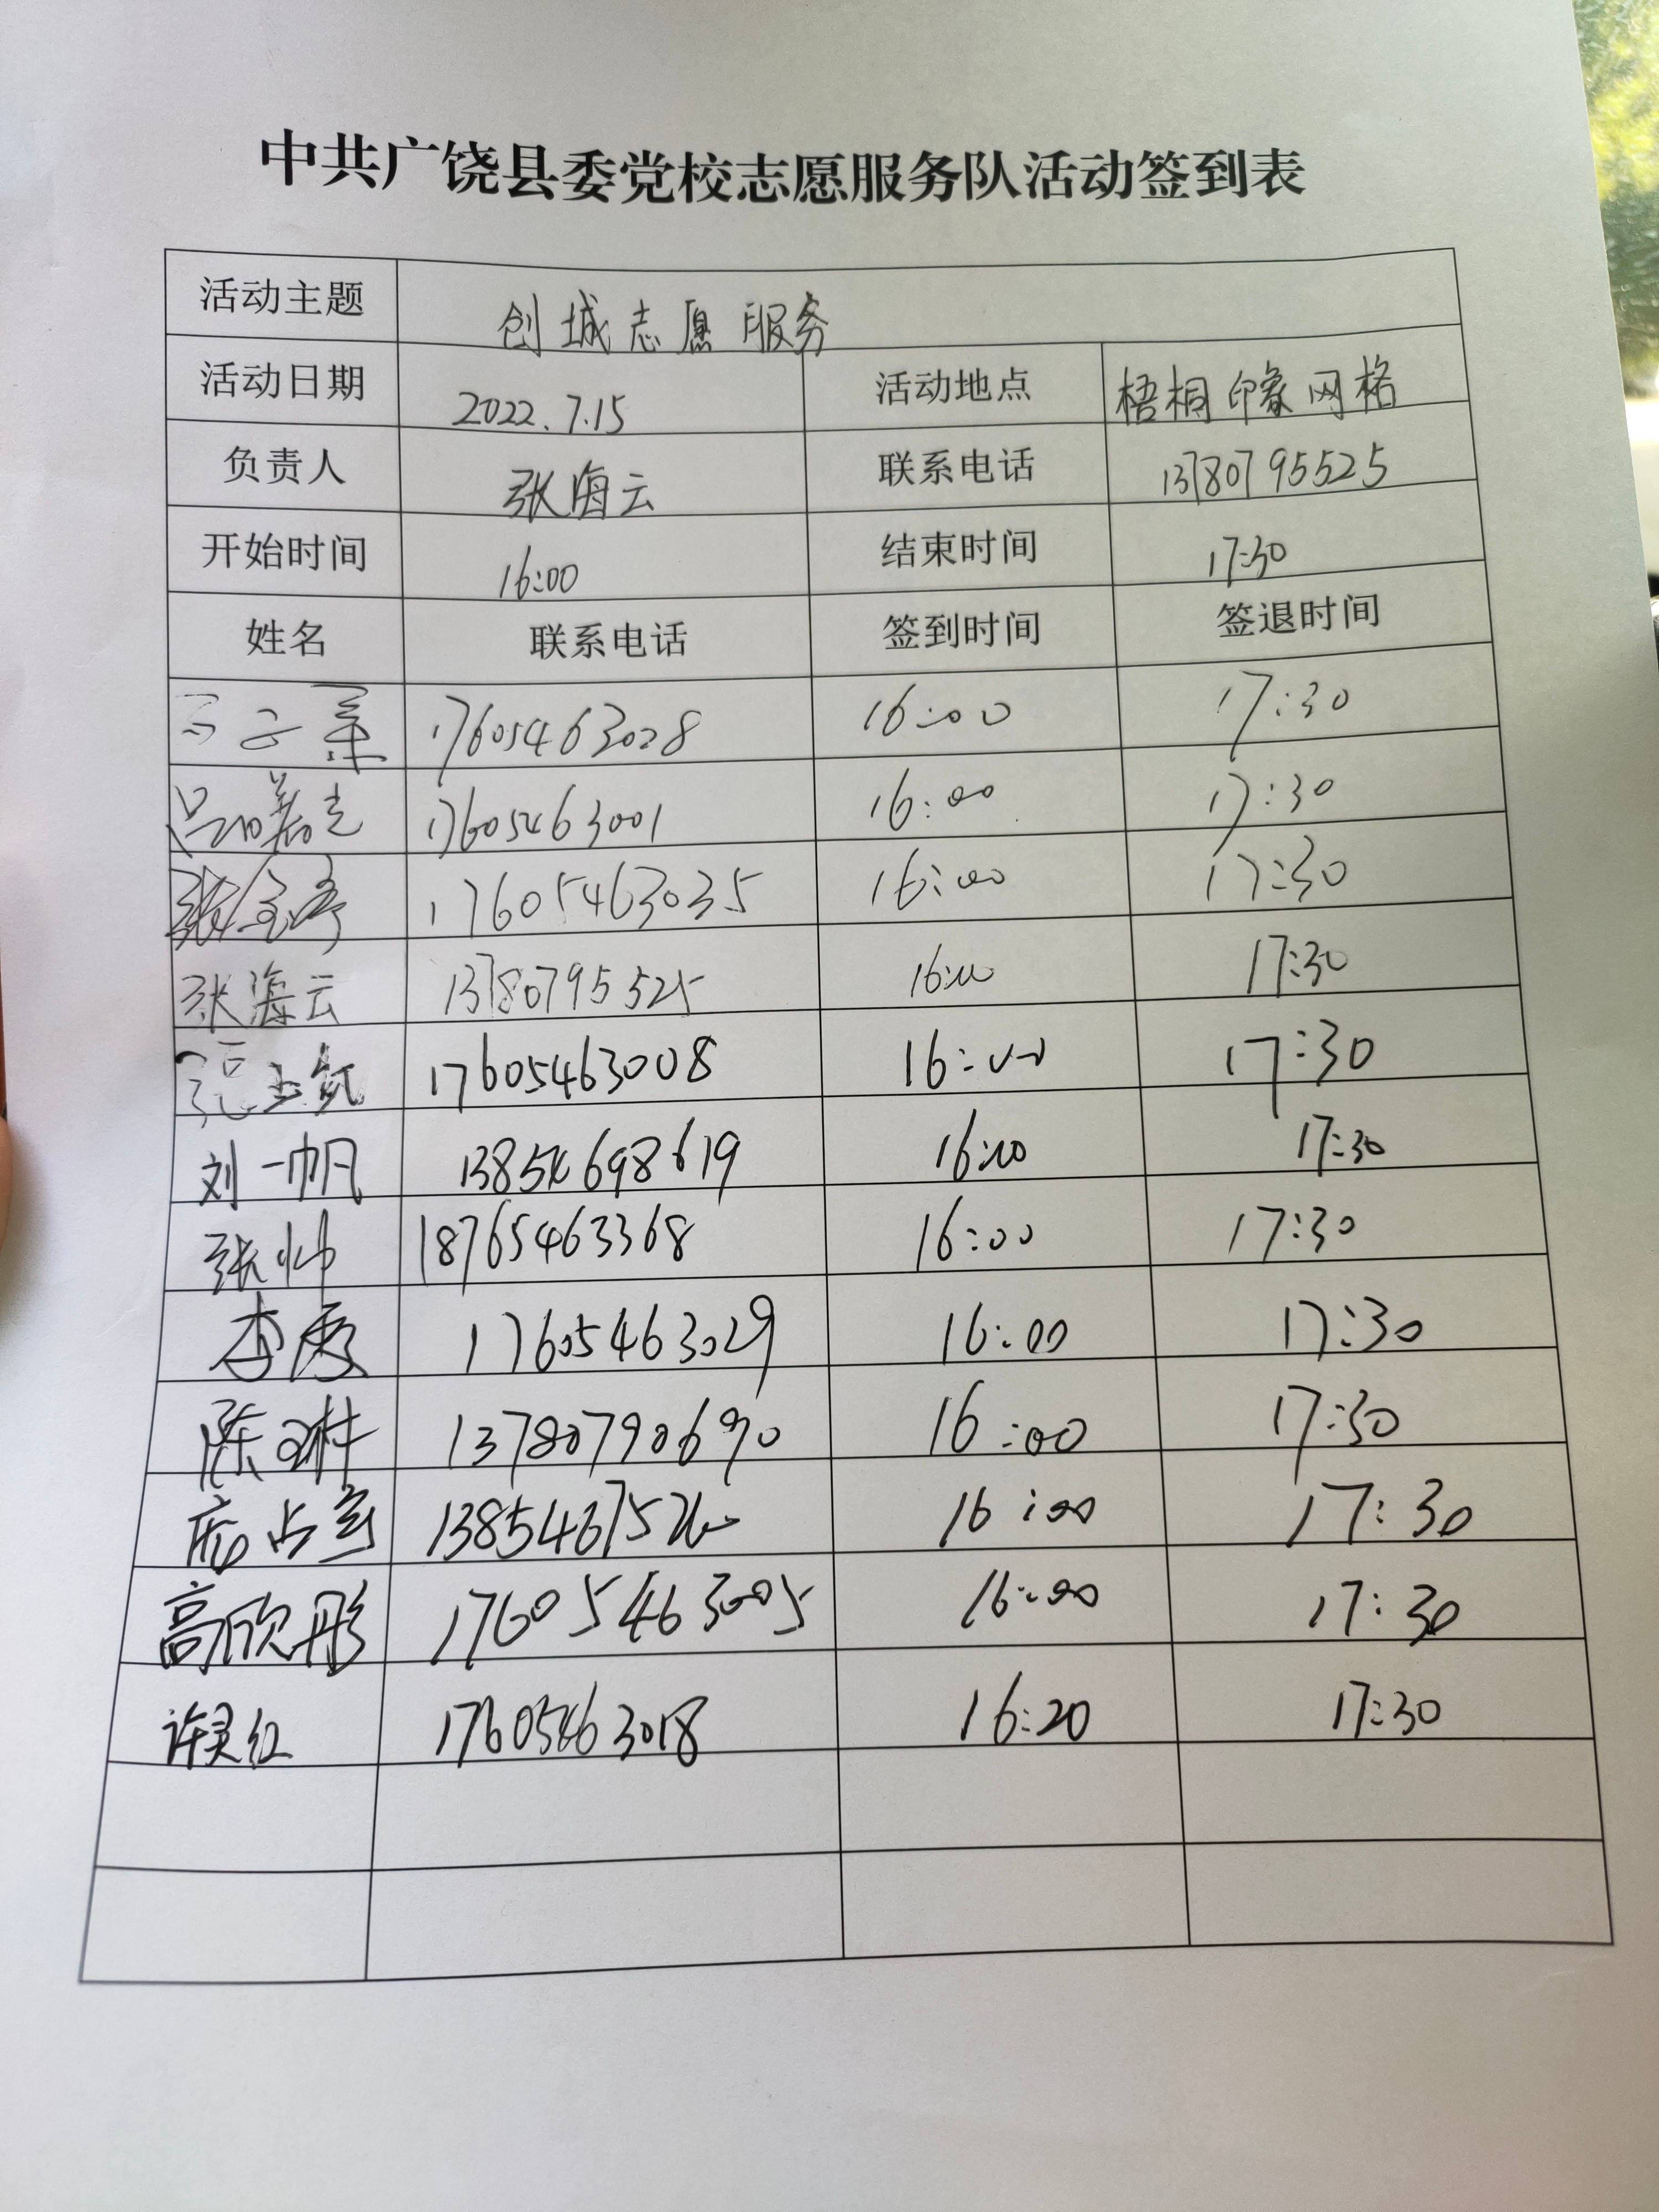 中共广饶县委党校志愿服务队活动签到表
活动主题 创城志愿服务
活动日期 2022.7.15 活动地点 梧桐印象网格
负责人 张海云 联系电话 13780795525
开始时间 16:00 结束时间 17:30
姓名 联系电话 签到时间 签退时间
17605463028 16:00 17:30
17605463001 16:00 17:30
张 17605463035 16:00 17:30
张海云 13780795525 16:00 17:30
17605463008 16:00 17:30
刘一帆 13854698619 16:00 17:30
张帅 18765463368 16:00 17:30
李秀 17605463029 16:00 17:30
陈 13780790690 16:00 17:30
16:00 17:30
高欣彤 17605463005 16:00 17:30
许灵红 17605463018 16:20 17:30